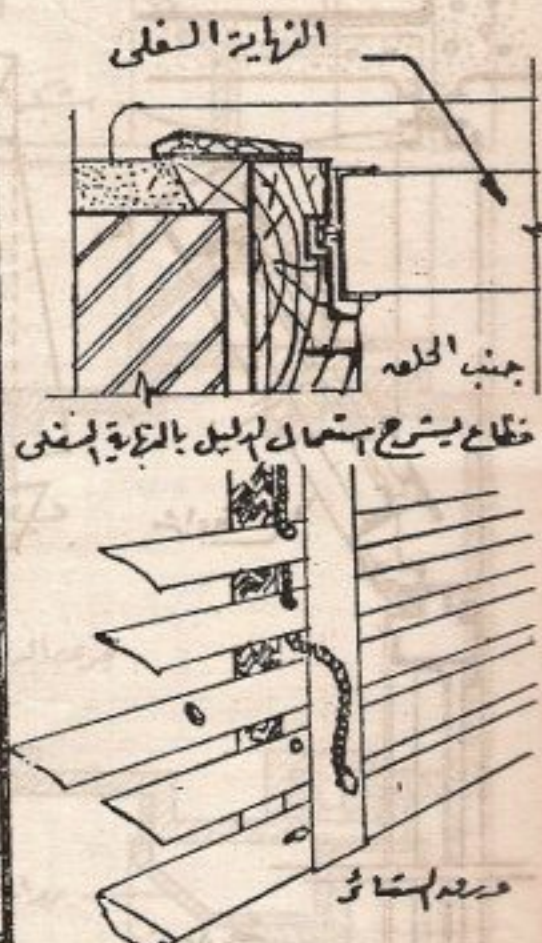 النهاية السفلى
جنب الحلقه
قطاع يشرح استعمال الدليل بالنهاية السفلى
ورق الستائر